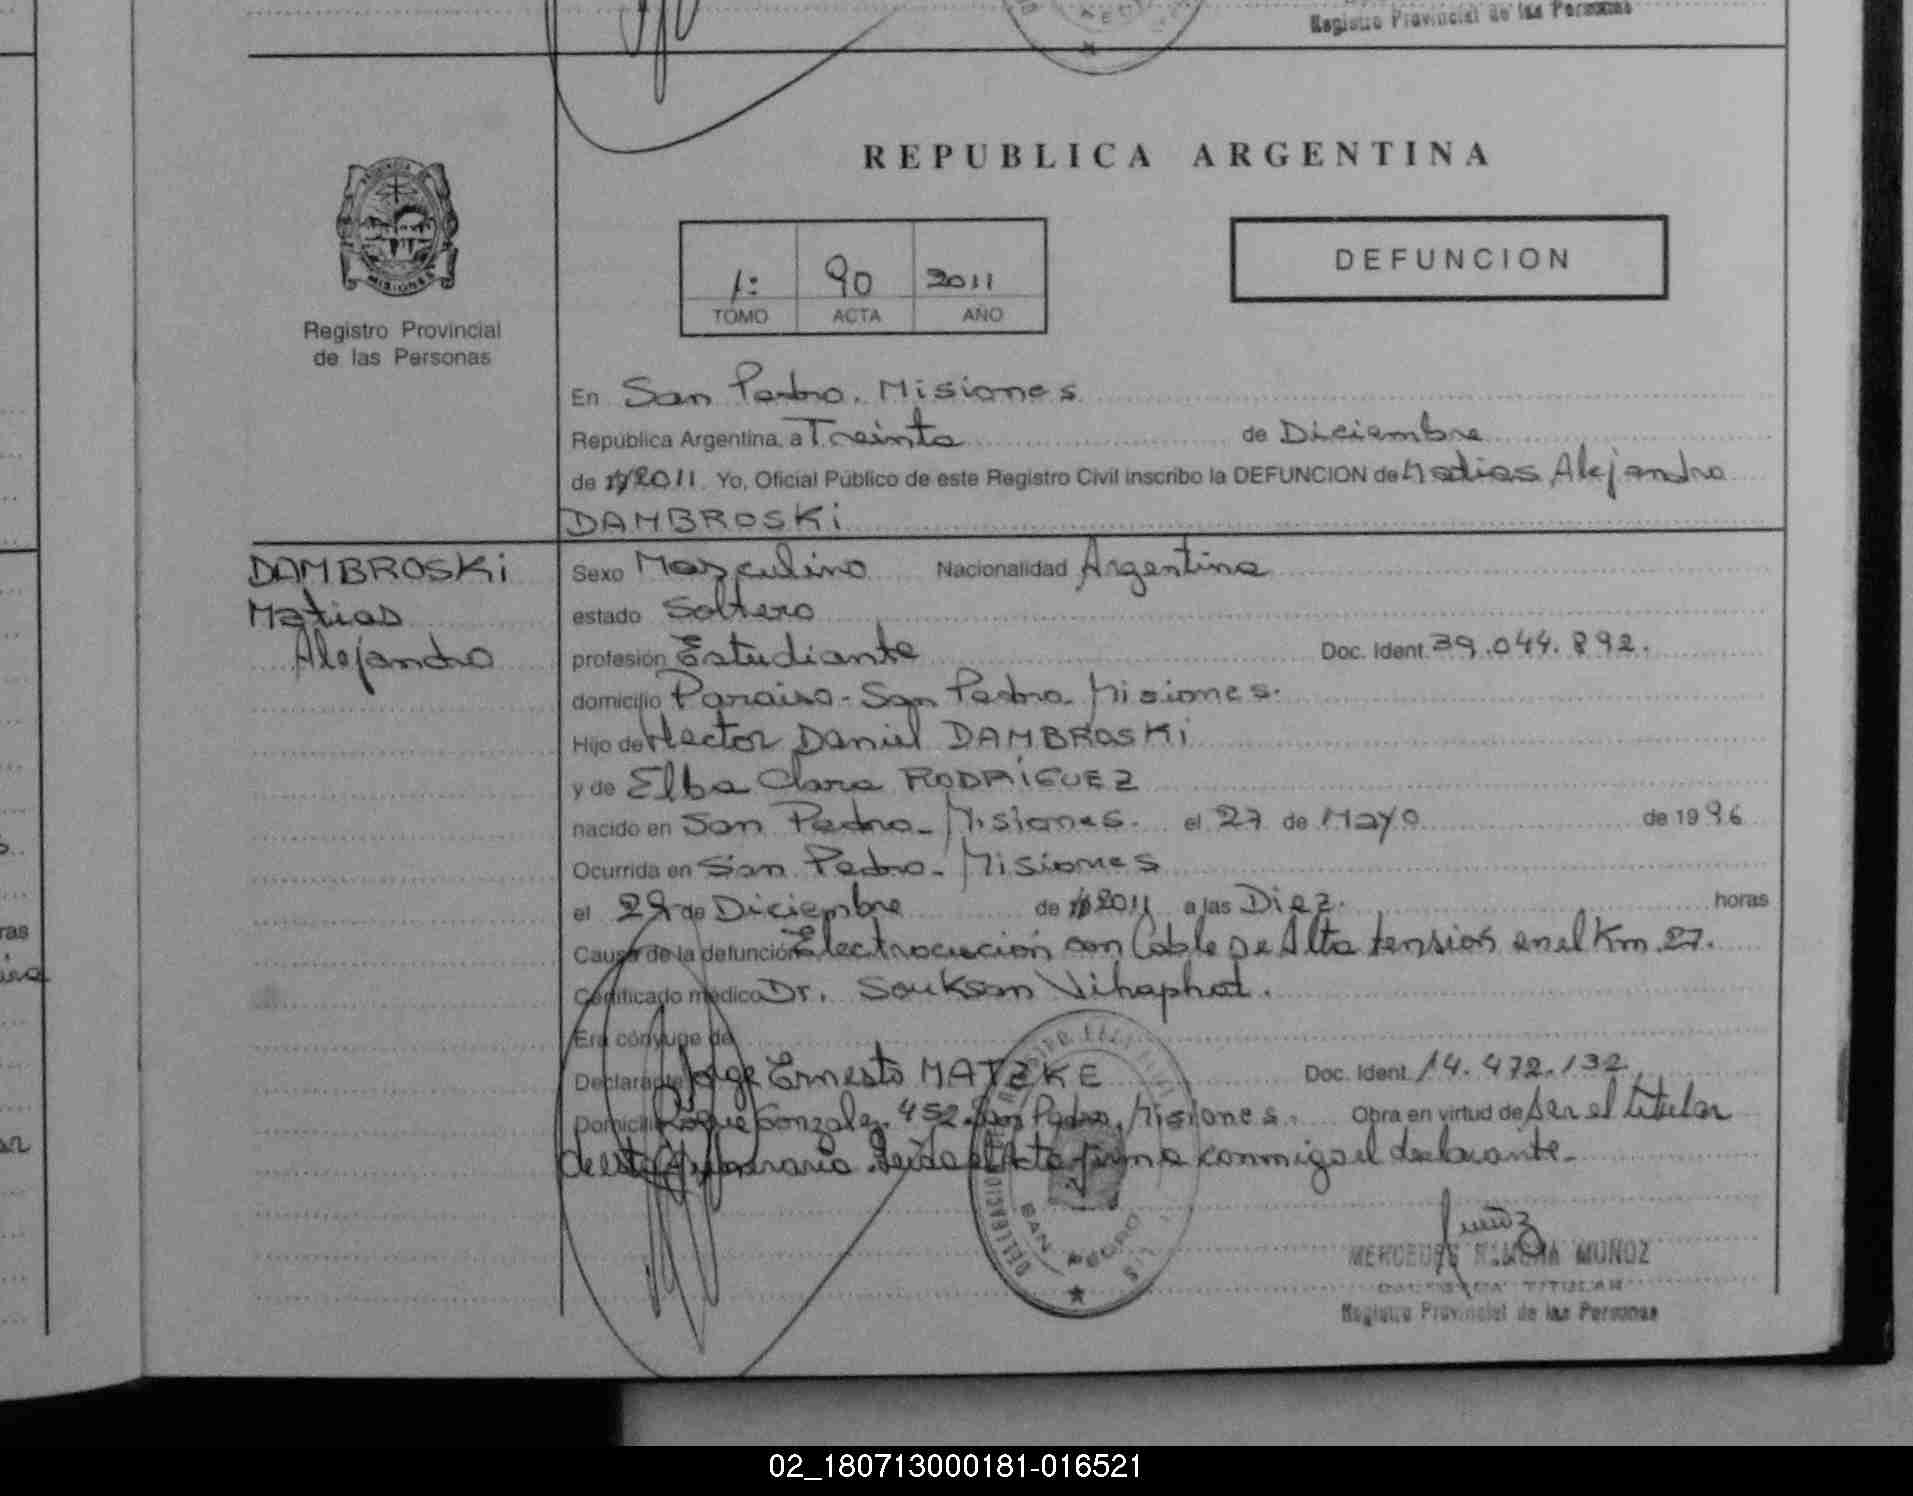 Registro Provincial de las Personas
REPUBLICA ARGENTINA
PROVINCIA
MISIONES
Registro Provincial
de las Personas
1: 90 2011
TOMO ACTA AÑO
DEFUNCION
En San Pedro. Misiones
República Argentina, a Treinta de Diciembre
de 2011. Yo, Oficial Público de este Registro Civil inscribo la DEFUNCION de Matias Alejandro
DAMBROSKi
DAMBROSKi
Matias
Alejandro
Sexo Masculino Nacionalidad Argentina
estado Soltero
profesión Estudiante Doc. Ident. 39.044.892.
domicilio Paraiso - San Pedro. Misiones.
Hijo de Hector Daniel DAMBROSKi
y de Elba Clara RODRÍGUEZ
nacido en San Pedro - Misiones. el 27 de Mayo de 1996
Ocurrida en San Pedro - Misiones
el 29 de Diciembre de 2011 a las Diez. horas
Causa de la defunción Electrocución con Cable de Alta tensión en el Km 27.
Certificado médico Dr. Souksan Vihaphat.
Era cónyuge de
Declarante Jorge Ernesto MATZKE Doc. Ident. 14.472.132
Domicilio Roque Gonzalez. 452. San Pedro. Misiones. Obra en virtud de ser el titular
de est. funerario. Leida el Acta firma conmigo el declarante.
SAN PEDRO
MERCEDES RAMONA MUÑOZ
TITULAR
Registro Provincial de las Personas
02_180713000181-016521